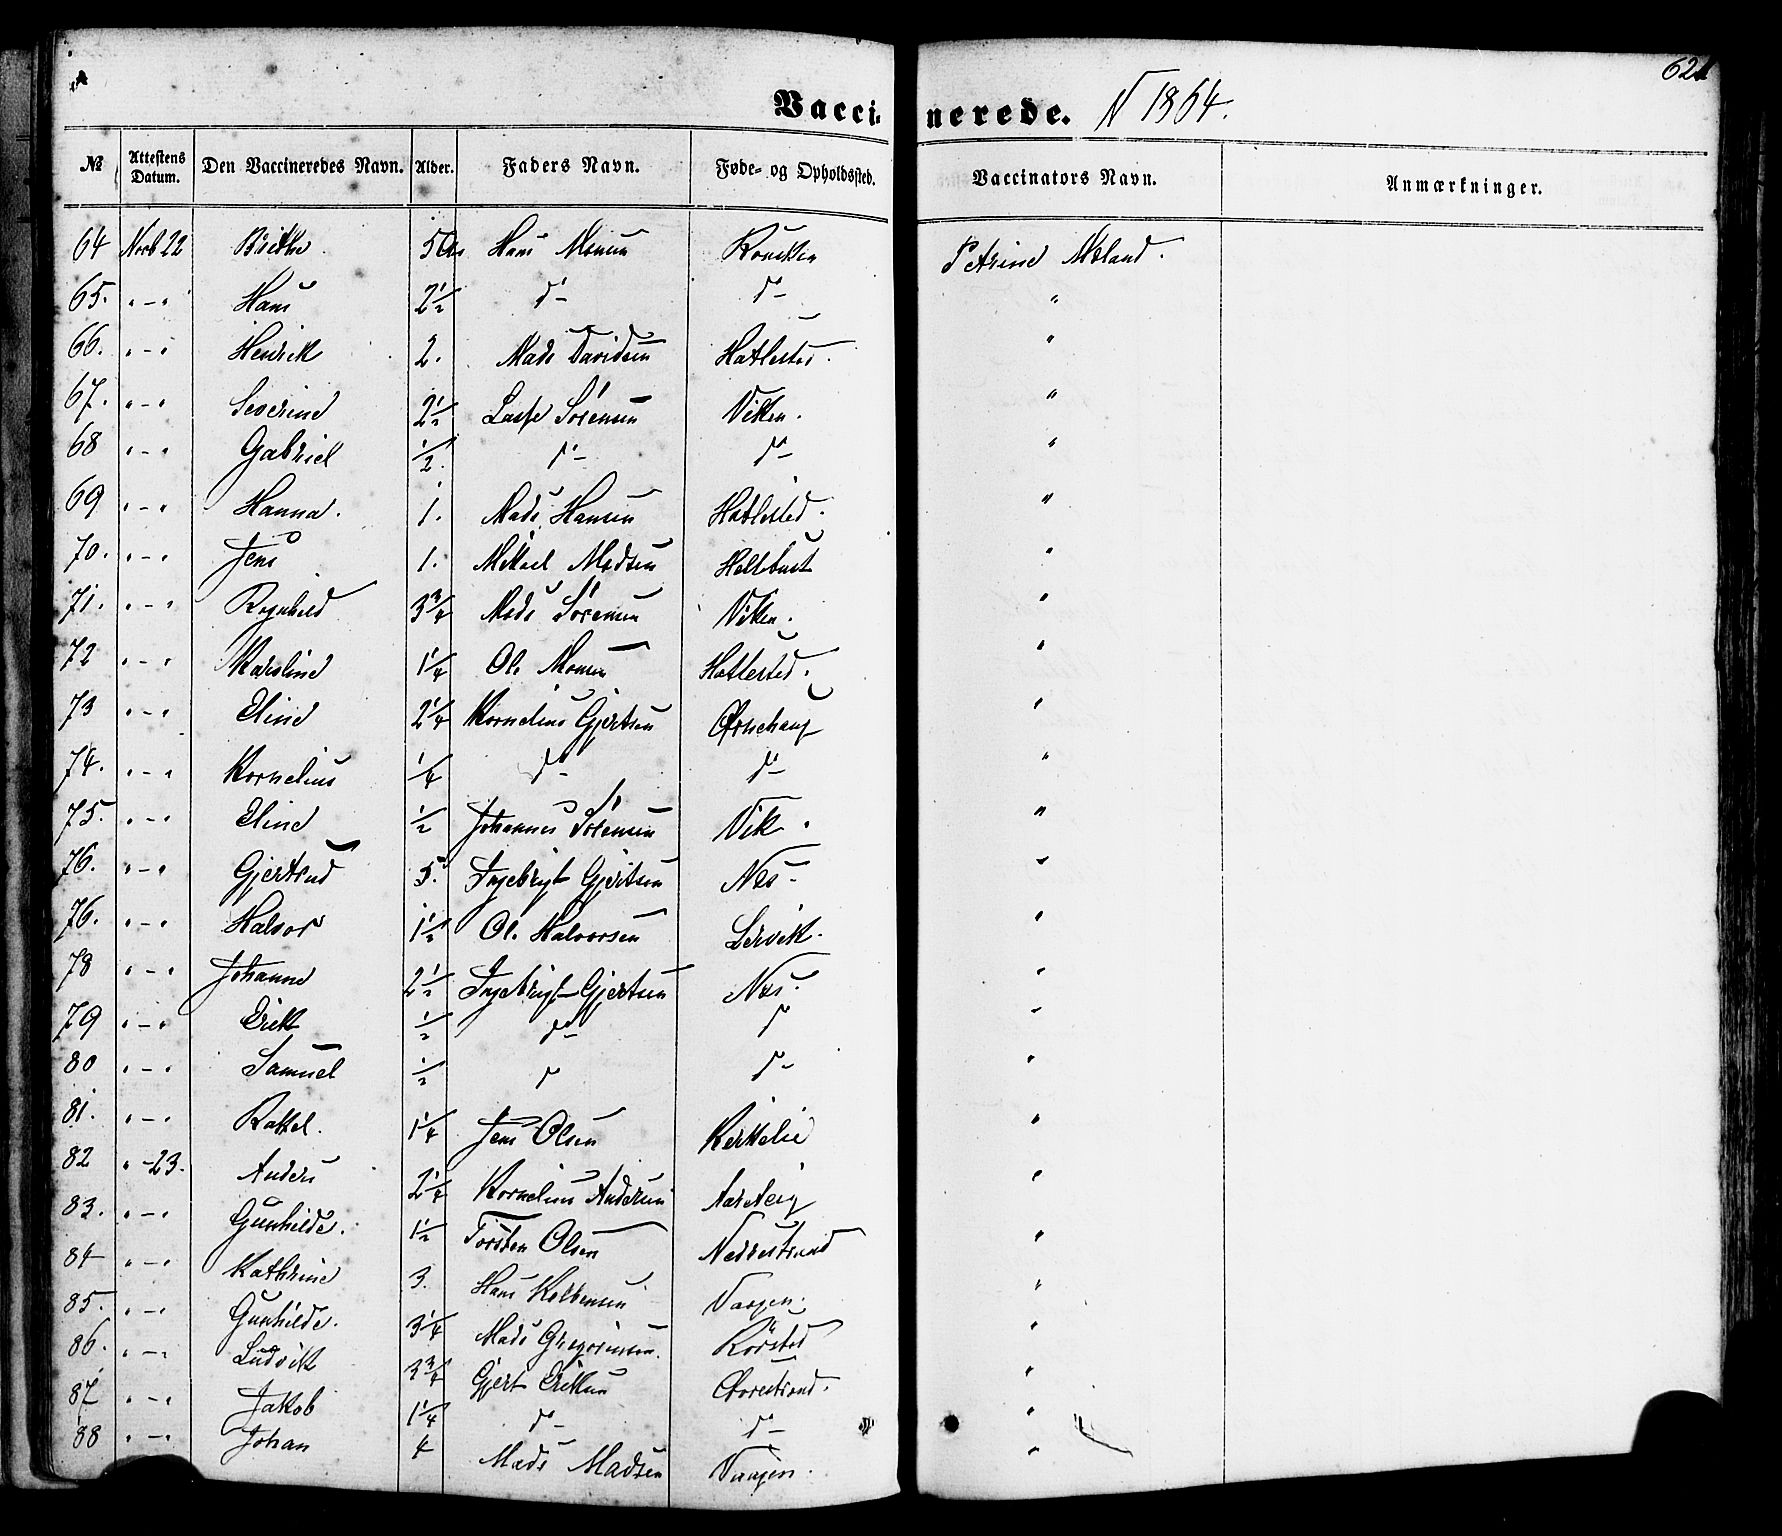 621
Vaccinerede. 1864.
№ Attestens Datum. Den Vaccineredes Navn. Alder. Faders Navn. Føde- og Opholdssted. Vaccinators Navn. Anmærkninger.
64 22 Brithe 5 Hans Monsen Petrine
65. " - " Hans 2½ d- d- "
66. " - " Henrik 2. Mads Davidsen Hatlested. "
67. " - " Severine 2½ Lasse Sørensen Viken. "
68 " - " Gabriel ½. d- d- "
69 " - " Hanna. 1. Mads Hansen Hatlested. "
70. " - " Jens 1. Mikael Madsen "
71. " - " Ragnhild 3¾ Mads Sørensen Viken. "
72 " - " Karoline 1¼ Ole Monsen Hatlested. "
73 " - " Eline 2¼ Kornelius Gjertsen "
74. " - " Kornelius ¼ d- d- "
75. " - " Eline ½ Johannes Sørensen Vik. "
76. " - " Gjertrud 5. Ingebrigt Gjertsen Næs. "
76. " - " Halvor 1½ Ole Halvorsen Lervik. "
78 " - " Johanne 2½ Ingebrigt Gjertsen Næs. "
79 " - " Erik ½ d- d "
80 " - " Samuel ½ d d- "
81. " - " Rakel. 1¼ Jens Olsen Kirkelie "
82 " - 23. Anders 2¼ Kornelius Andersen "
83. " - " Gunhilde. 1½ Torsten Olsen Nedrestrand "
84 " - " Kathrine 3. Hans Kolbensen Vaagen. "
85. " - " Gunhilde. 3¼ Mads Gregoriusen. Rørsted "
86. " - " Ludvik 3¾ Gjert Eriksen "
87 " - " Jakob 1¼ d- d- "
88 " - " Johan 4 Mads Madsen Vaagen. "